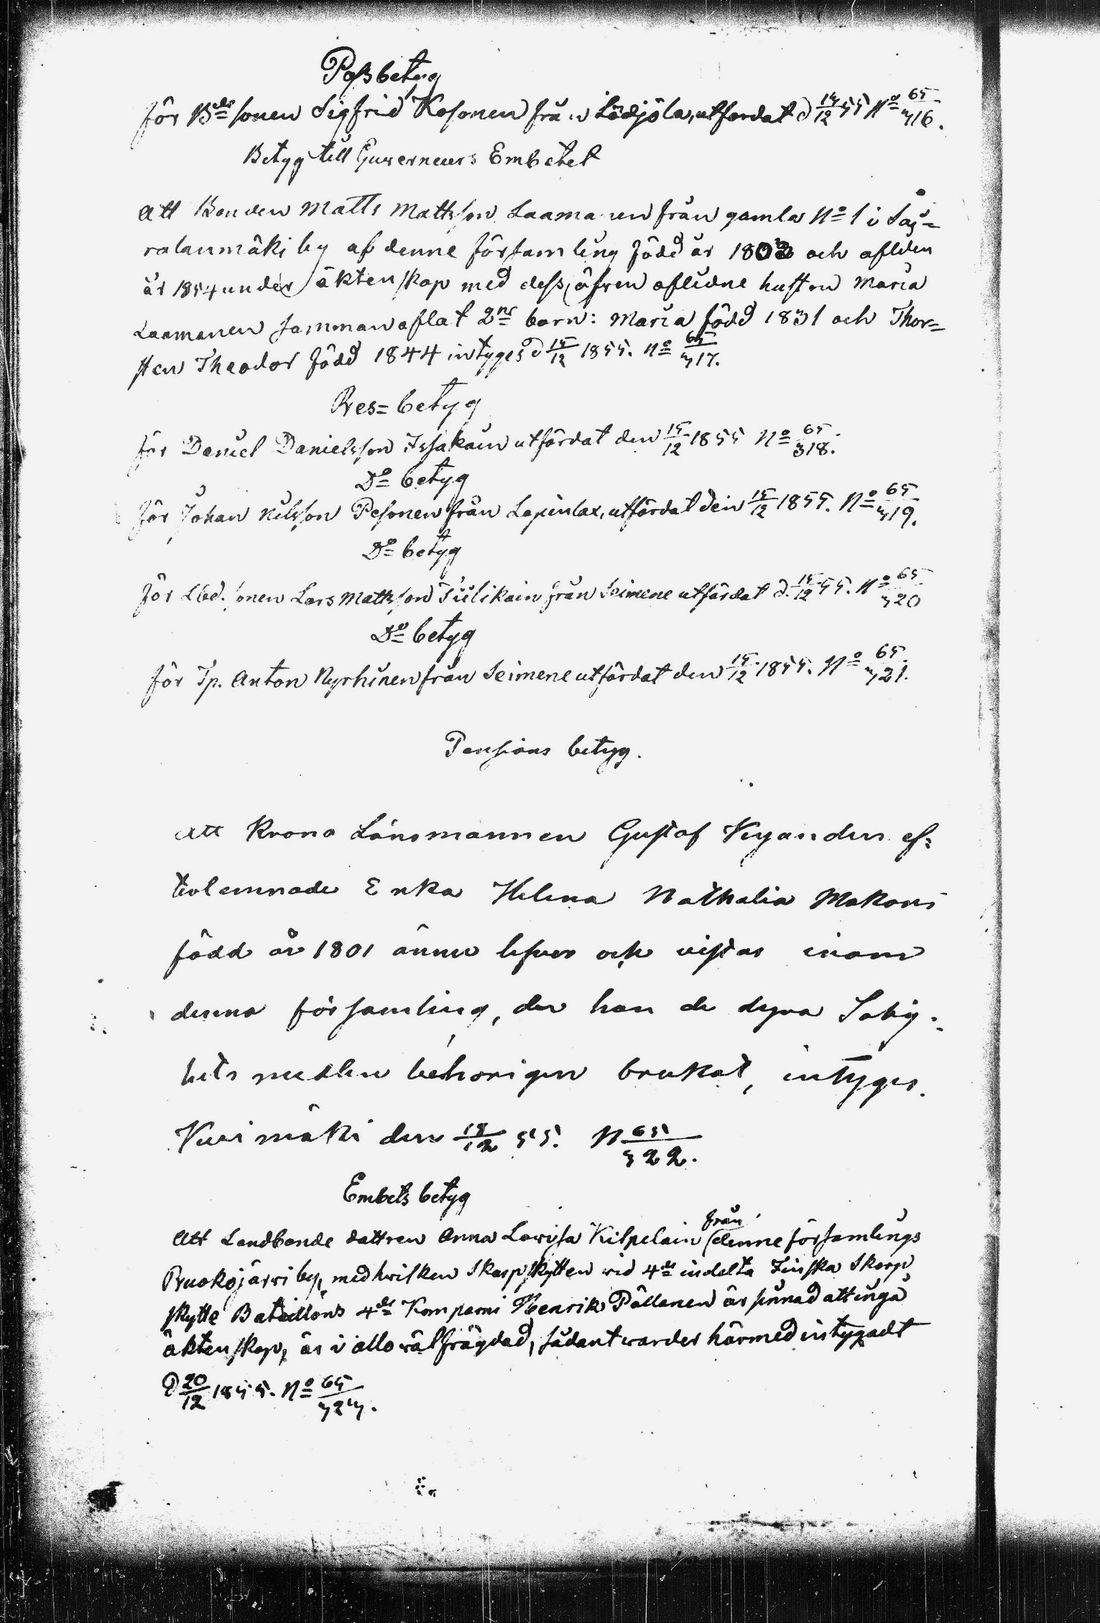 Passbetyg
för Bde sonen Sigfrid Kosonen från Lödjöla, utfärdat d 14/12 55 No 65/716.
Betyg till Guverneurs Embetet
Att Bonden Matts Mattsson Laamanen från gamla No 1 i Saj=
ralanmäki by af denne församling född år 1803 och afliden
år 1854 under äktenskap med dess, äfven aflidne hustru Maria
Laamanen samman aflat 2ne barn: Maria född 1831 och Thor=
sten Theodor född 1844 intyges d 15/12 1855. No 65/717.
Res=betyg
för Daniel Danielsson Issakain utfärdat den 15/12 1855 No 65/718.
Do betyg
för Johan Nilsson Pesonen från Lapinlax, utfärdat den 15/12 1855. No 65/719.
Do betyg
för Lbd. sonen Lars Mattsson Tiilikain från Seimene utfärdat d. 15/12 55. No 65/720
Do betyg
för Tp. Anton Nyrhinen från Seimene utfärdat den 15/12 1855. No 65/721.
Pensions betyg.
Att Krono Länsmannen Gustaf Kyanders ef=
terlemnade Enka Helena Nathalia
född år 1801 ännu lefver och vistas inom
denna församling, der hon de dyra Salig=
hets medlen behörigen brukat, intyges.
Kivimäki den 18/12 55. N 65/722.
Embets betyg
Att Landbonde dottren Anna Lovisa Kilpelain från denne församlings
Ruokojärvi by, med hvilken Skarpskytten vid 4de indelta Finska Skarp
skytte Bataillons 4de Kompani Henrik Pällanen är sinnad att ingå
äktenskap, är i allo välfrägdad, sådant warder härmed intygadt
D 20/12 1855. No 65/727.